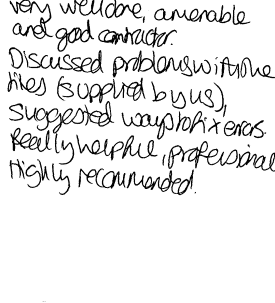 very well done, amenable
and good contractor.
Discussed problems with the
tiles (supplied by us),
suggested ways to fix errors.
Really helpful, professional
Highly recommended.